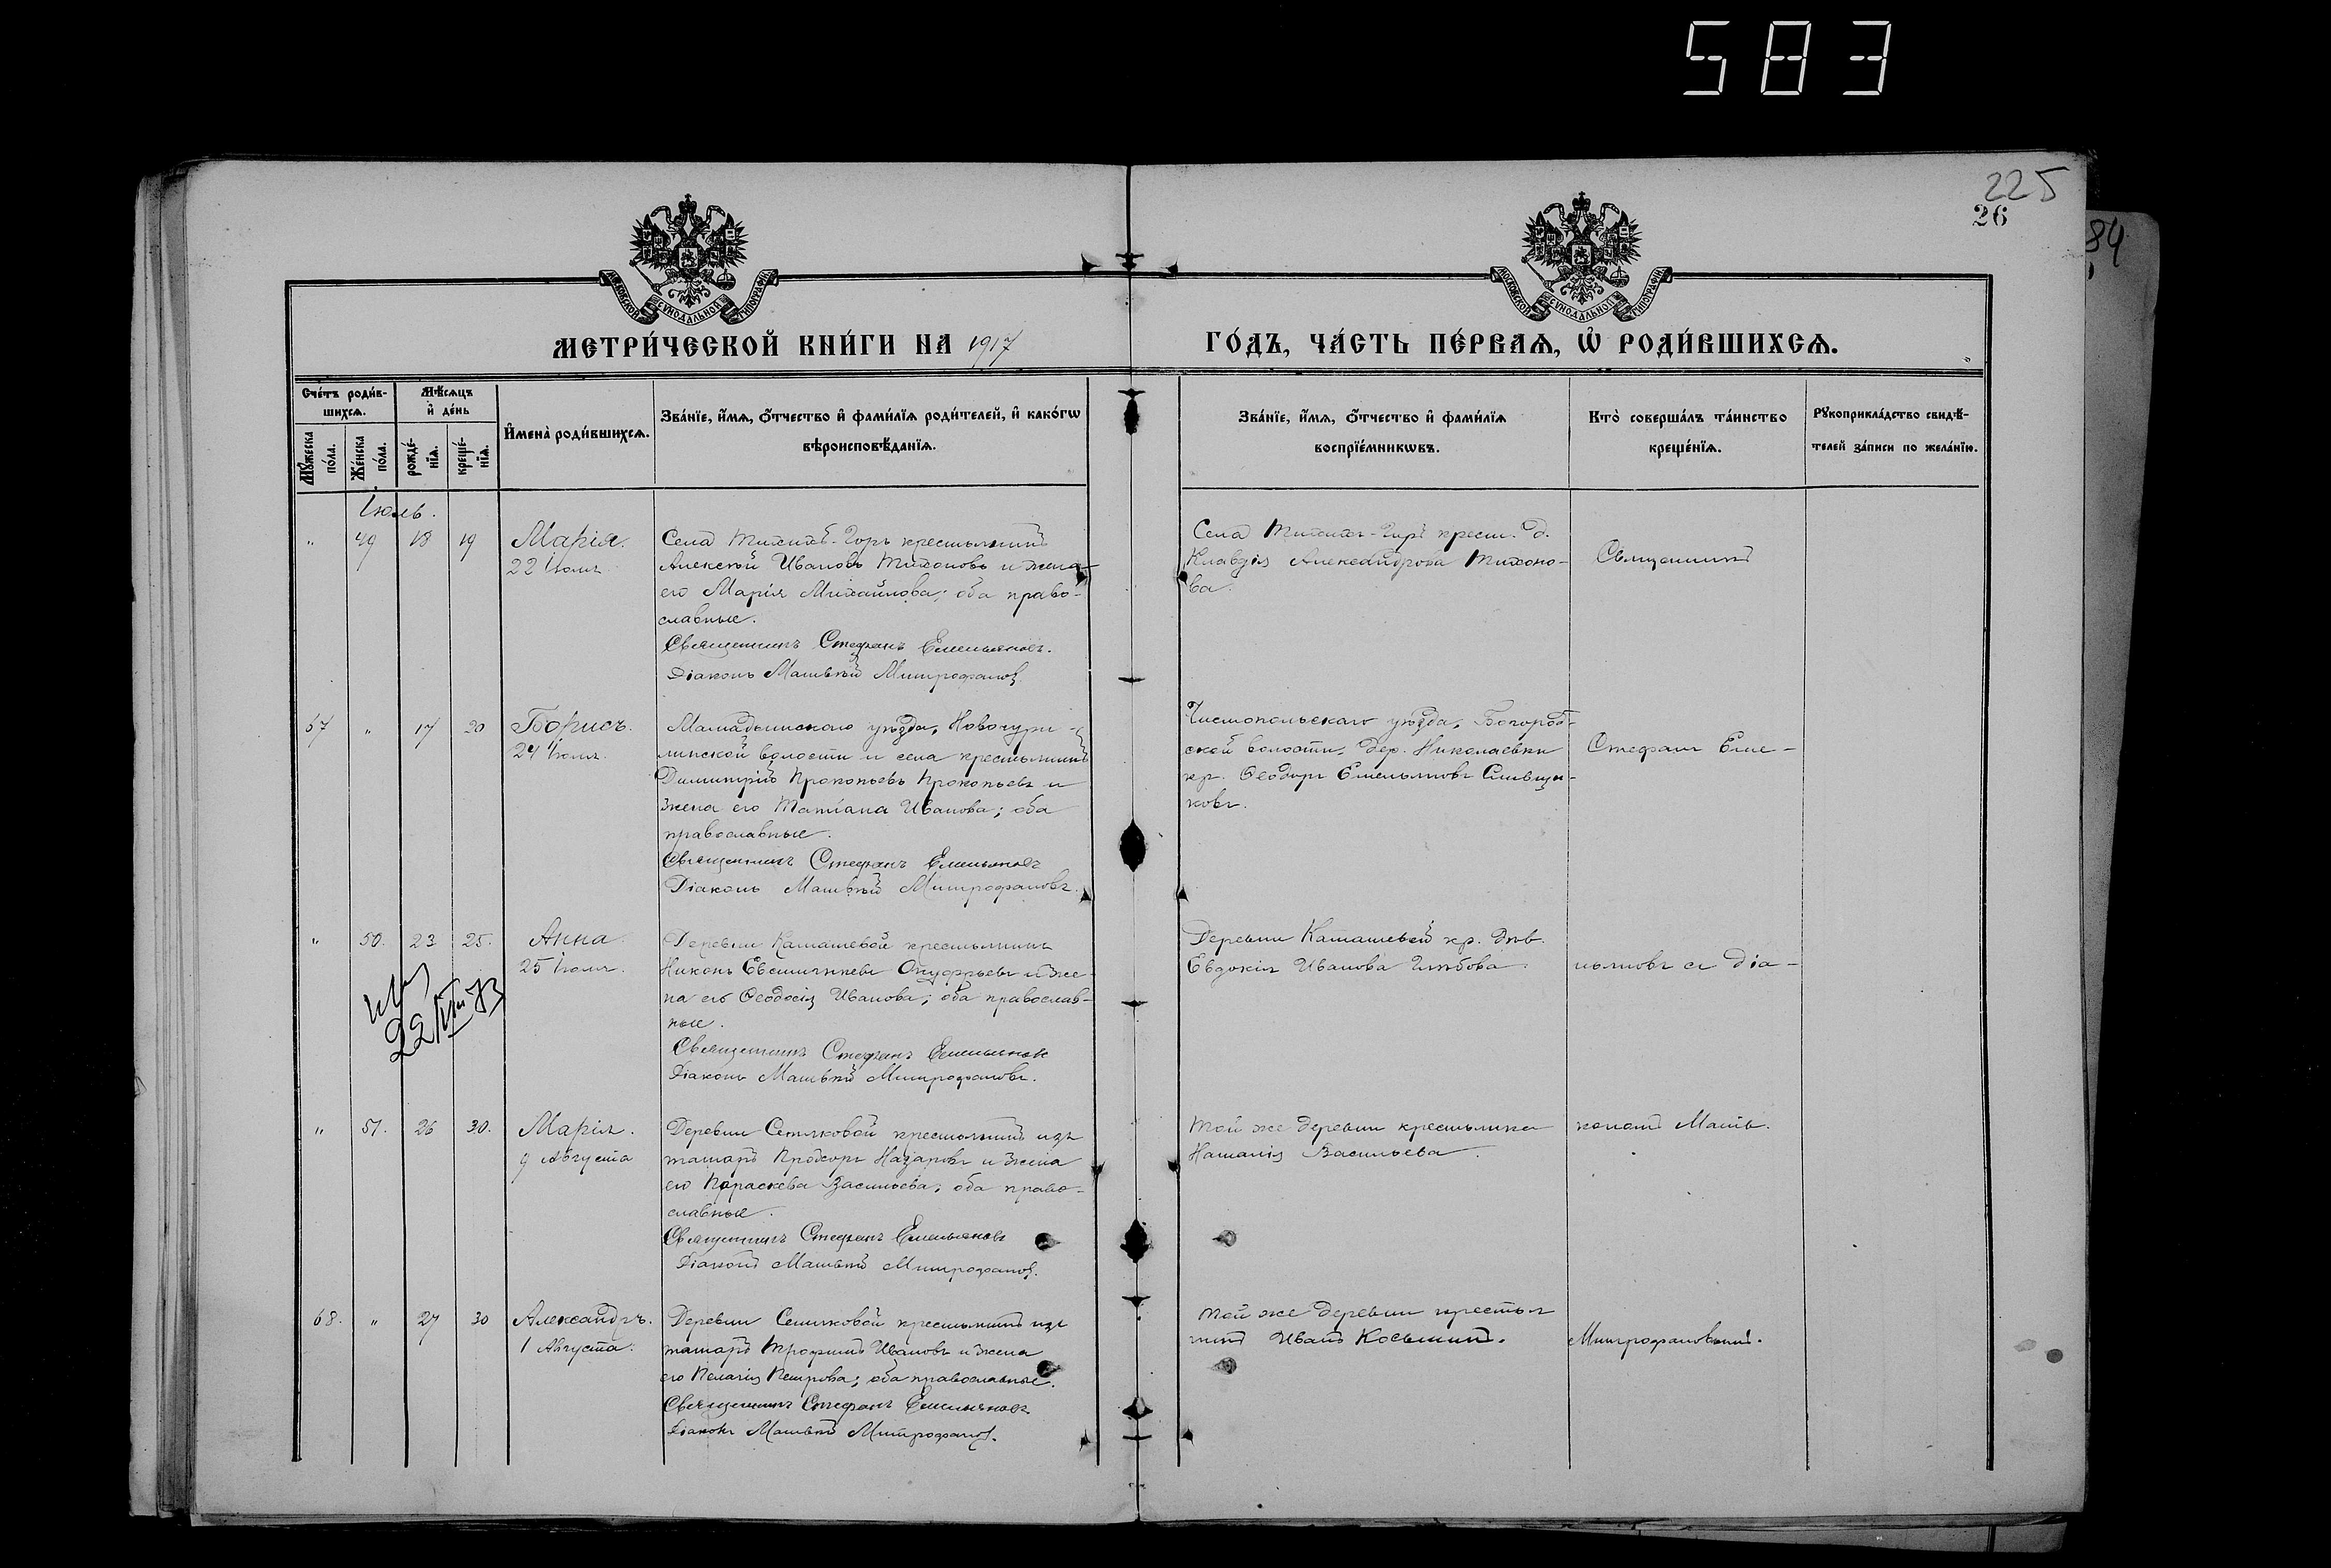 583
225
26
84
МОСКОВСКОЙ СѴНОДАЛЬНОЙ ТИПОГРАФІИ
МОСКОВСКОЙ СѴНОДАЛЬНОЙ ТИПОГРАФІИ
МЕТРИ́ЧЕСКОЙ КНИ́ГИ НА 1917
ГО́ДЪ, ЧА́СТЬ ПЕ́РВАѦ, Ѡ҆ РОДИ́ВШИХСѦ.
Сче́тъ роди́в-
шихсѧ.
Мѣ́сѧцъ
и҆ де́нь
Мꙋ́жеска
по́ла.
Же́нска
по́ла.
рожде́-
нїѧ.
креще́-
нїѧ.
И҆мена̀ роди́вшихсѧ.
Зва́нїе, и҆́мѧ, ѻ҆́тчество и҆ фами́лїѧ роди́телей, и҆ како́гѡ
вѣроисповѣ́данїѧ.
Зва́нїе, и҆́мѧ, ѻ҆́тчество и҆ фами́лїѧ
воспрїе́мникѡвъ.
Кто̀ соверша́лъ та́инство
креще́нїѧ.
Рꙋкоприкла́дство свидѣ́-
телей за́писи по жела́нїю.
Іюль.
" 49 18 19 Марія.
22 Іюля
Села Тихихъ-Горъ крестьянинъ
Алексѣй Ивановъ Тихоновъ и жена
его Марія Михайлова; оба право-
славные.
Священникъ Стефанъ Емельяновъ.
Діаконъ Матвѣй Митрофановъ
Села Тихихъ-Горъ крест. д.
Клавдія Александрова Тихоно-
ва.
Священникъ
67 " 17 20 Борисъ.
24 Іюля.
Мамадышскаго уѣзда,
волости и села крестьянинъ
Димитрій Прокопьевъ Прокопьевъ и
жена его Татіана Иванова; оба
православные.
Священникъ Стефанъ Емельяновъ
Діаконъ Матвѣй Митрофановъ.
Чистопольскаго уѣзда, Богород-
ской волости, дер. Николаевки
кр. Ѳеодоръ Емельяновъ
ковъ.
Стефанъ Еме-
" 50. 23 25. Анна
25 Іюля.
22/VIII 73
Деревни Камашевой крестьянинъ
Никонъ Евстигнѣевъ Онуфріевъ и же-
на его Ѳеодосія Иванова; оба православ-
ные.
Священникъ Стефанъ Емельяновъ
Діаконъ Матвѣй Митрофановъ.
Деревни Камашевой кр. дѣв.
Евдокія Иванова Глѣбова.
льяновъ съ діа-
" 51. 26 30. Марія.
9 Августа
Деревни Сетяковой крестьянинъ изъ
татаръ Прохоръ Назаровъ и жена
его Параскева Васильева; оба право-
славные.
Священникъ Стефанъ Емельяновъ
Діаконъ Матвѣй Митрофановъ.
Той же деревни крестьянка
Наталія Васильева.
кономъ Матѳ.
68. " 27 30 Александръ.
1 Августа.
Деревни Сетяковой крестьянинъ изъ
татаръ Трофимъ Ивановъ и жена
его Пелагія Петрова; оба православные.
Священникъ Стефанъ Емельяновъ
Діаконъ Матвѣй Митрофановъ.
Той же деревни крестья
нинъ Иванъ Косьминъ.
Митрофановымъ.